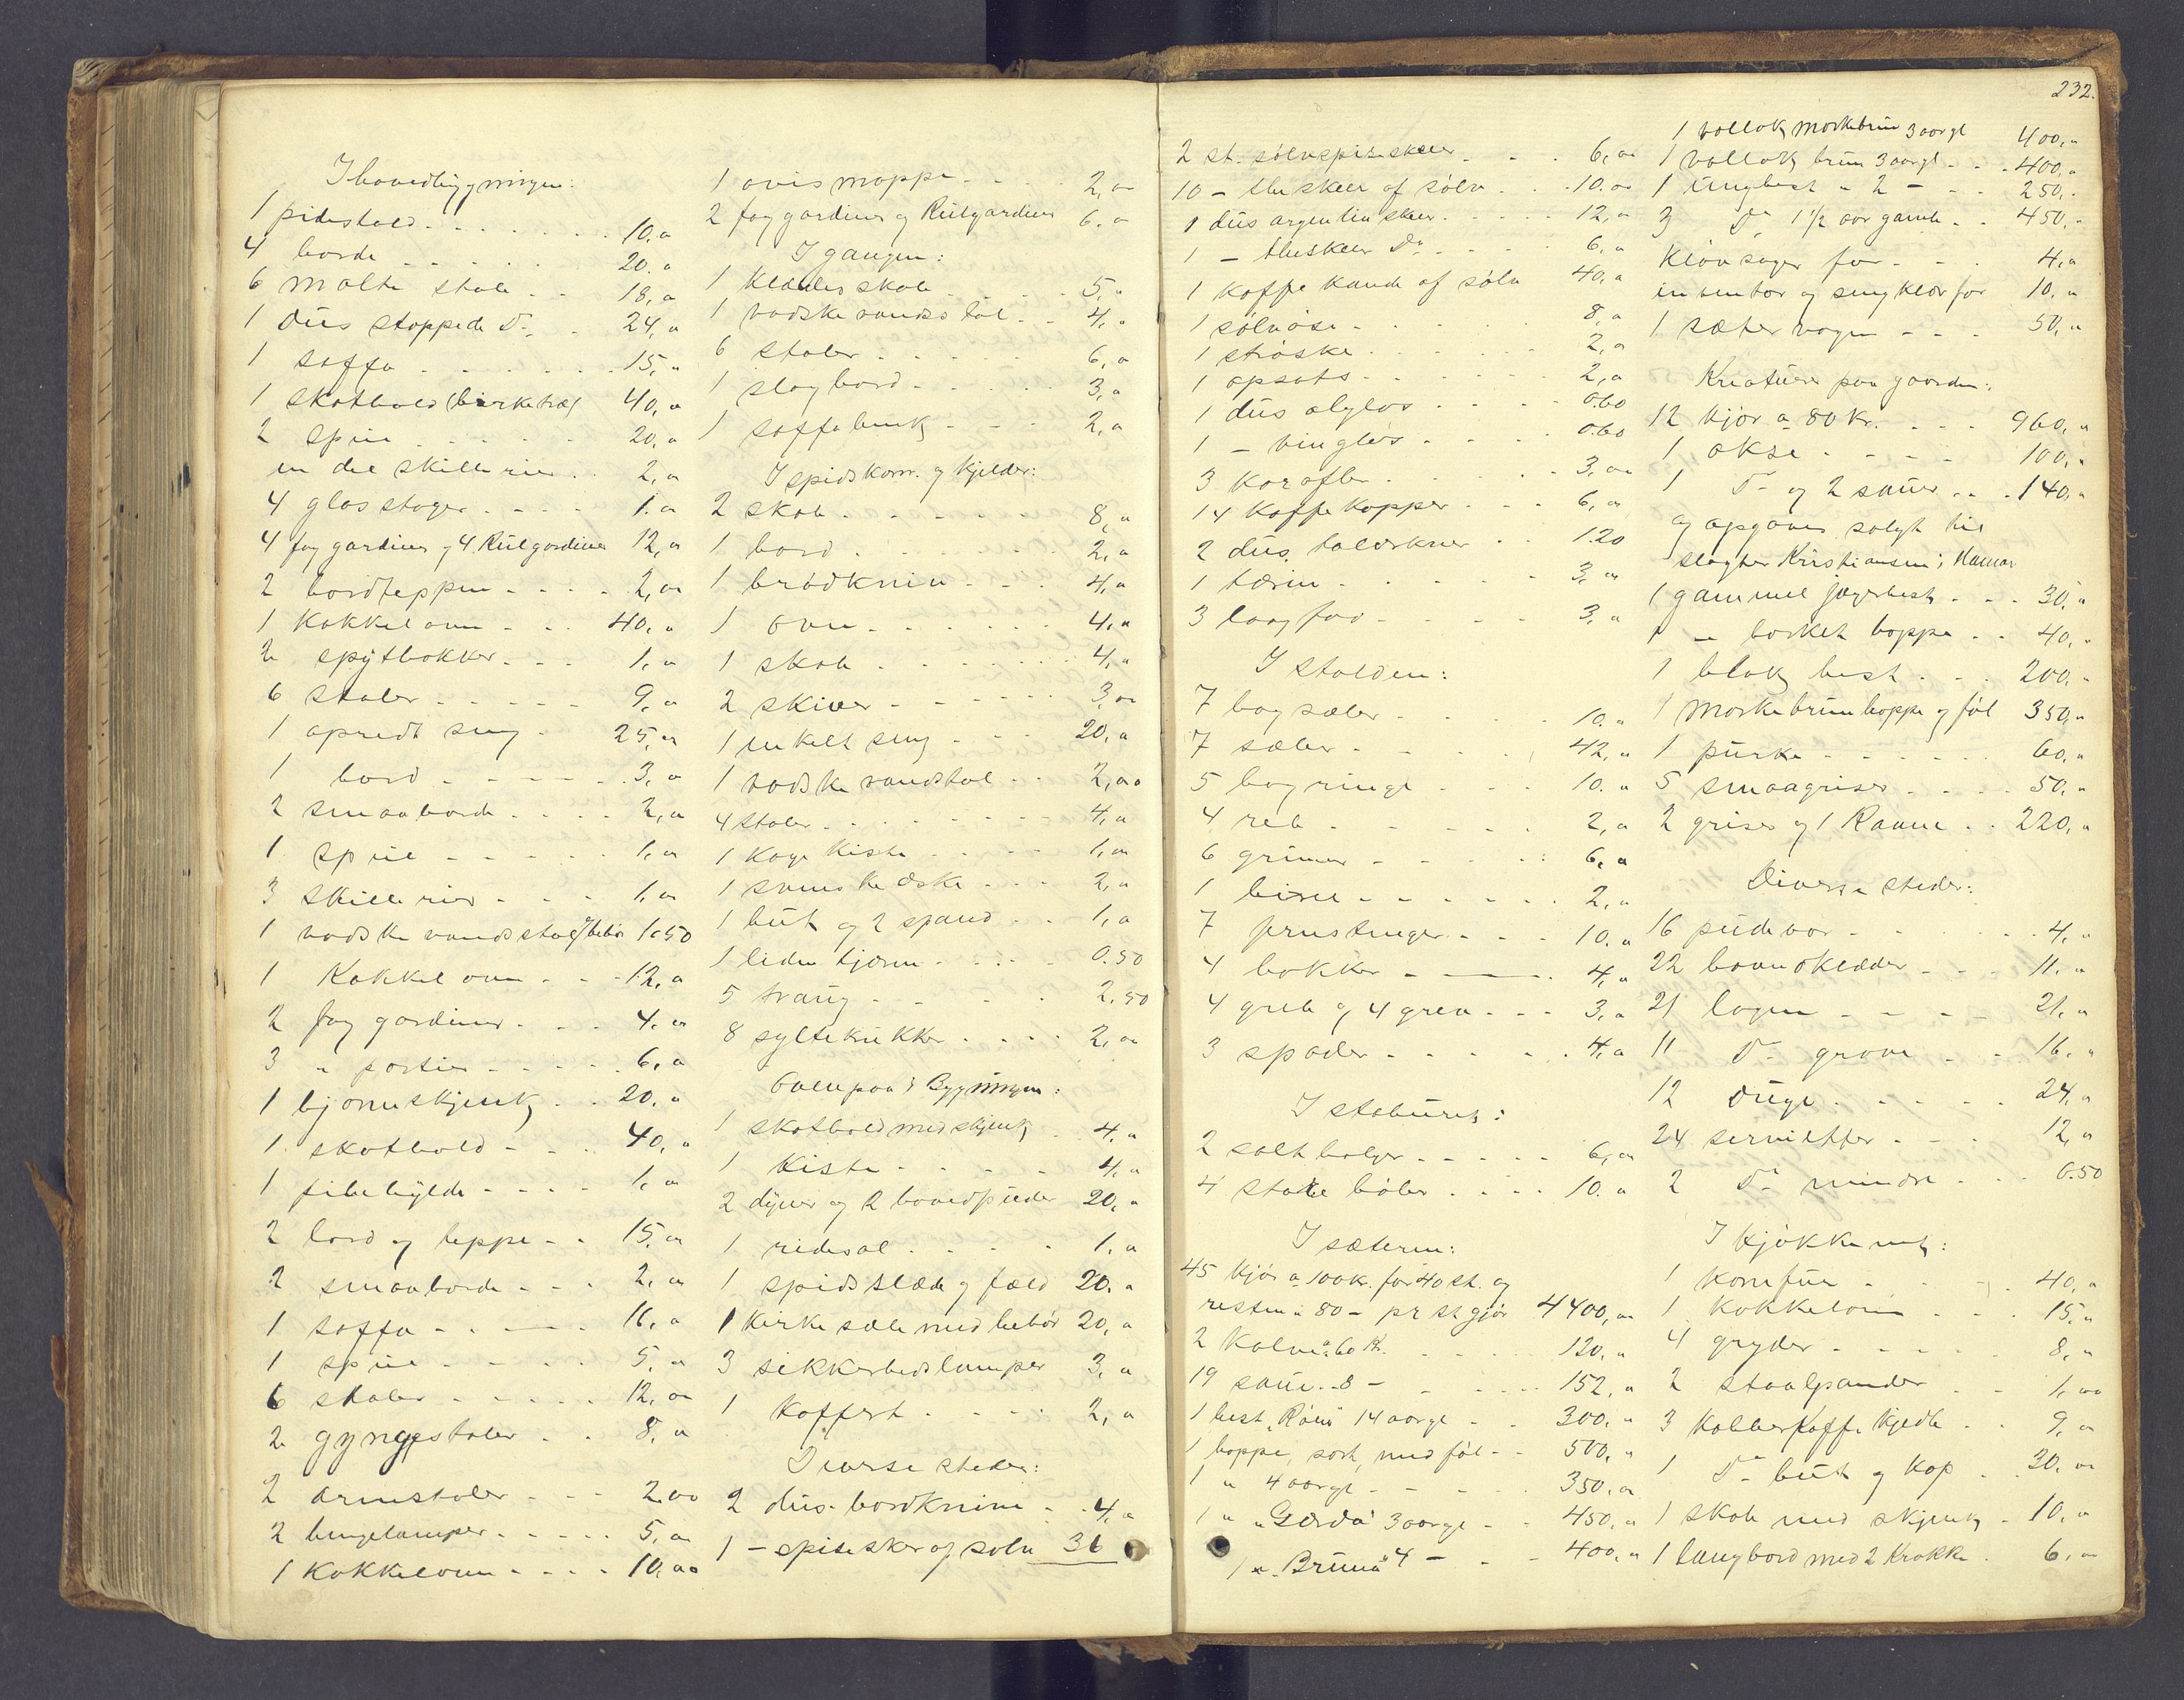 I hovedbygningen:
1 pidestald . . . . . . . 10."
4 borde . . . . . . 20."
6 malte stole . . 18,"
1 dus stoppede Do . . 24,"
1 soffa . . . . . . . 15,"
1 skathold (birketræ) 40,"
2 speil . . . . . . 20."
en del skillerier . . 2,"
4 glasstager . . . . 1."
4 fag gardiner og 4 Rulgardiner 12,"
2 bordteppen . . . . 2,"
1 Kakkelovn . . . 40,"
2 spytbakker . . . 1,"
6 staler . . . . . 9,"
1 opredt seng . 25,"
1 bord . . . . . . 3,"
2 smaaborde . . . . 2,"
1 speil . . . . . . 1,"
3 skillerier . . . . 1,"
1 vadskevandsstol m/ behør 1.50
1 Kakkelovn . . . 12,"
2 fag gardiner . . . 4."
3 " portier . . . . . 6,"
1 hjørneskjenk . . 20."
1 skathold . . . 40,"
1 pibehylde . . . . 1,"
2 bord og teppe . . 15,"
2 smaaborde . . . 2,"
1 soffa . . . . 16,"
1 speil . . . . . 5,"
6 stoler . . . . . 12,"
2 gyngestoler . . 8,"
2 armstoler . . . 2.00
2 hengelamper . . . . . 5,"
1 Kakkelovn . . . . 10,00
1 avismappe . . . . 2,"
2 fag gardiner og Rulgardiner 6."
I gangen:
1 klædesskab . . . . . 5,"
1 vadskevandsstol . . 4,"
6 stoler . . . . . . 6,"
1 slagbord . . . . . 3,"
1 soffabenk . . . 2,"
I spidskam. og kjelder:
2 skab . . . . . . 8,"
1 bord . . . . . . 2,"
1 brødkniv . . . 4,"
1 ovn . . . . . . 4,"
1 skab . . . . . . 4,"
2 skiver . . . . . 3,00
1 enkelt seng . . . 20,"
1 vadskevandstol . . 2,00
4 stoler . . . . . . . 4,"
1 Kagekiste . . . . 1,"
1 . . . 2,"
1 but og 2 spand . . 1,"
1 liden tjærn . . . . 0.50
5 traug . . . . . 2.50
8 syltekrukker . . . . 2,"
Ovenpaa i Bygningen:
1 skathold med skjenk . 4,"
1 Kiste . . . . . 4,"
2 dyner og 2 hovedpuder 20,"
1 ridesal . . . . 1,"
1 spidsslæde og fæld 20."
1 Kirkesæle med behør 20,"
3 sikkerhedslamper 3,"
1 Koffert . . . . 2,"
Diverse steder:
2 dus. bordknive . . 4,"
1 — spiseskeer af sølv 36
232.
2 st. sølvspiseskeer . . . 6,00
10 — theskeer af sølv . . . 10.00
1 dus argentin skeer . . . . . 12,"
1 — theskeer Do . . . . 6,"
1 kaffekande af sølv 40,"
1 sølvøse . . . . . . 8,"
1 strøske . . . . . . 2,"
1 opsats . . . . . . 2,"
1 dus ølglas . . . . 0.60
1 — vinglas . . . . 0.60
3 karafler . . . . . 3,00
14 kaffekopper . . . 6,"
2 dus. talærkner . . 1.20
1 terin . . . . . . 3,"
3 laagfad . . . . . 3,"
I stalden:
7 bogsæler . . . . . 10."
7 sæler . . . . . . 42,"
5 bogringe . . . 10."
4 reb . . . . . . 2,"
6 grimer . . . . : 6,"
1 bissel . . . . . . 2,"
7 . . . 10."
4 bakker . . . 4,"
4 greb og 4 grev . . . 3,"
3 spader . . . . . . 4,"
I staburet:
2 saltbaljer . . . . . 6,"
4 stabebøler . . . . 10."
I sæteren:
45 kjør a 100 kr. for 40 st. og
resten a 80 — pr st. gjør 4400,"
2 Kalve a 60 Kr. . . . . 120,"
19 saue . . 8 — . . . . . 152,"
1 hest "Røsse" 14 aargl . . 300,"
1 hoppe, sort, med føl . . 500,"
1 " 4 aargl . . . . . 350,"
1 " "Gerda" 3 aargl . . 450,"
1 " "Bruna" 4 — . . 400,"
1 vallak mørkebrun 3 aargl 400,"
1 vallak brun 3 aargl . . . 400,"
1 unghest " 2 — . . 250,"
3 Do 1 1/2 aar gamle . . 450,"
Kløvsager for . . . 4,"
inventar og sengklær for 10,"
1 sætervogn . . . 50,"
Kreature paa gaarden:
12 kjør a 80 kr. . . . 960,"
1 okse . . . . . 100,"
1 Do og 2 sauer . . . 140,"
og opgaves solgt til
slagter Kristiansen i Hamar
1 gammel jagerhest . . . 30,"
1 — borket hoppe . . 40,"
1 blak hest . . . 200,"
1 mørkebrun hoppe og føl 350,"
1 purke . . . . . . 60,"
5 smaagriser . . . . 50,"
2 griser og 1 Raane . . 220,"
Diverse steder:
16 pudevar . . . . . . 4,"
22 haandklæder . . . 11,"
21 lagen . . . . . 21,"
11 Do grove . . 16,"
12 duge . . . . . . 24,"
24 servietter . . . 12,"
2 Do mindre . . . 0.50
I kjøkkenet:
1 komfur . . . . 40,"
1 kakkelovn . . . 15,"
4 gryder . . . . . . 8,"
2 staalpander . . . 1,00
3 Kobberkaffekjedle . . 9,"
1 Do but og Kop . . 30,"
1 skab med skjenk . 10,"
1 langbord med 2 Krakke . 6,"